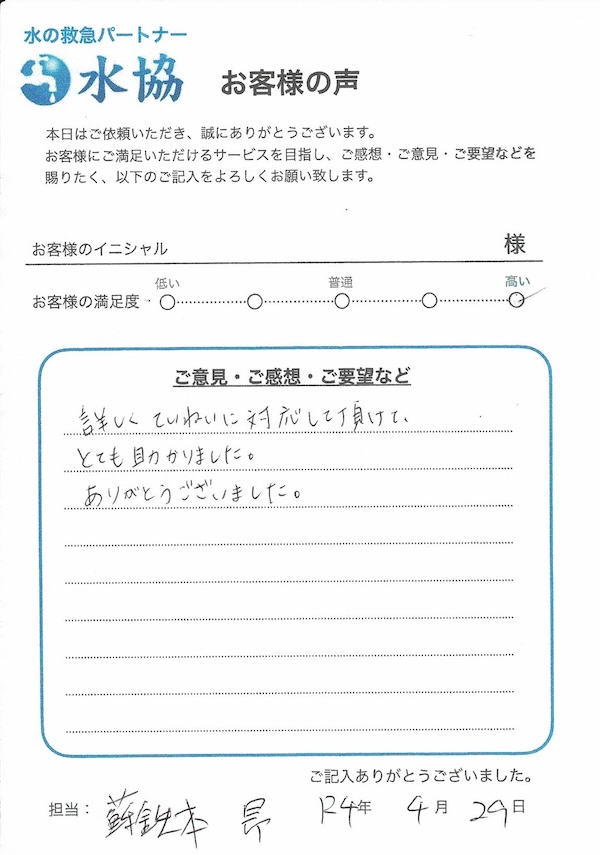 水の救急パートナー
水協 お客様の声
本日はご依頼いただき、誠にありがとうございます。
お客様にご満足いただけるサービスを目指し、ご感想・ご意見・ご要望などを
賜りたく、以下のご記入をよろしくお願い致します。
お客様のイニシャル 様
低い 普通 高い
お客様の満足度
ご意見・ご感想・ご要望など
詳しくていねいに対応して頂けて、
とても助かりました。
ありがとうございました。
ご記入ありがとうございました。
担当： 蘇鉄本 昴 R4年 4月 29日